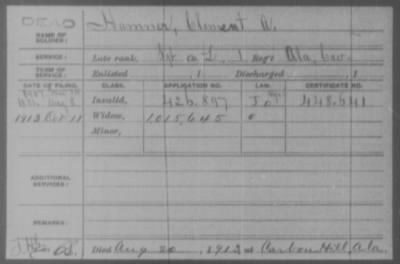 DEAD
NAME OF SOLDIER: Hamner, Clement A.
SERVICE: Late rank, Co. L, 1 Reg't Ala. Cav.
TERM OF SERVICE: Enlisted , 1 Discharged , 1
DATE OF FILING. CLASS. APPLICATION NO. LAW. CERTIFICATE NO.
Aug Invalid, 426.897 448.641
1913 Oct 11 Widow, 1,015,645
Minor,
ADDITIONAL SERVICES:
REMARKS:
Died Aug 20, 1913 at Carbon Hill, Ala.